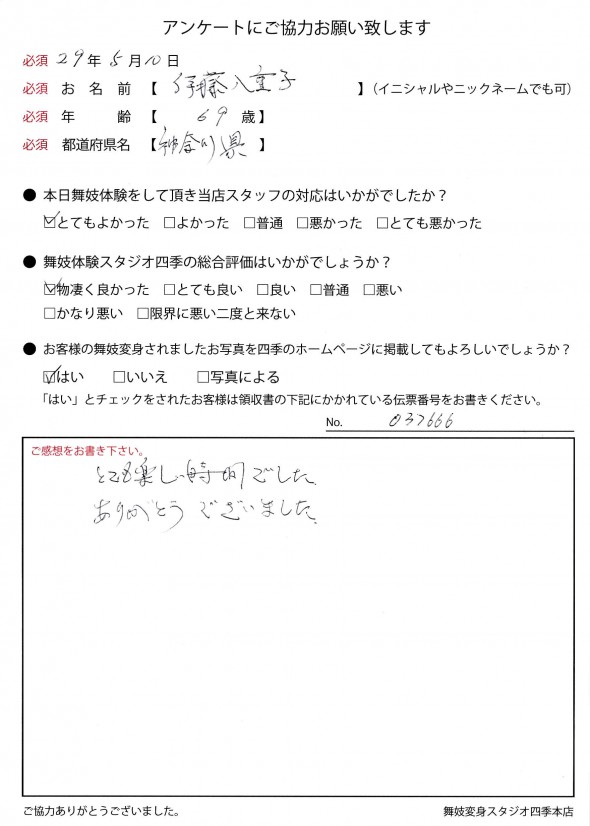 アンケートにご協力お願い致します
必須 29年5月10日
必須 お名前【 伊藤八重子 】(イニシャルやニックネームでも可)
必須 年齢【 69歳】
必須 都道府県名【神奈川県】
● 本日舞妓体験をして頂き当店スタッフの対応はいかがでしたか?
☑とてもよかった □よかった □普通 □悪かった □とても悪かった
● 舞妓体験スタジオ四季の総合評価はいかがでしょうか?
☑物凄く良かった □とても良い □良い □普通 □悪い
□かなり悪い □限界に悪い二度と来ない
● お客様の舞妓変身されましたお写真を四季のホームページに掲載してもよろしいでしょうか?
☑はい □いいえ □写真による
「はい」とチェックをされたお客様は領収書の下記にかかれている伝票番号をお書きください。
No. 037666
ご感想をお書き下さい。
とても楽しい時間でした。
ありがとうございました。
ご協力ありがとうございました。
舞妓変身スタジオ四季本店